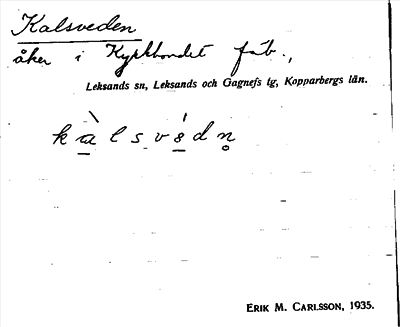 Kalsveden
åker i Kyrkbondet fäb.,
Leksands sn, Leksands och Gagnefs tg, Kopparbergs län.
ERIK M. CARLSSON, 1935.